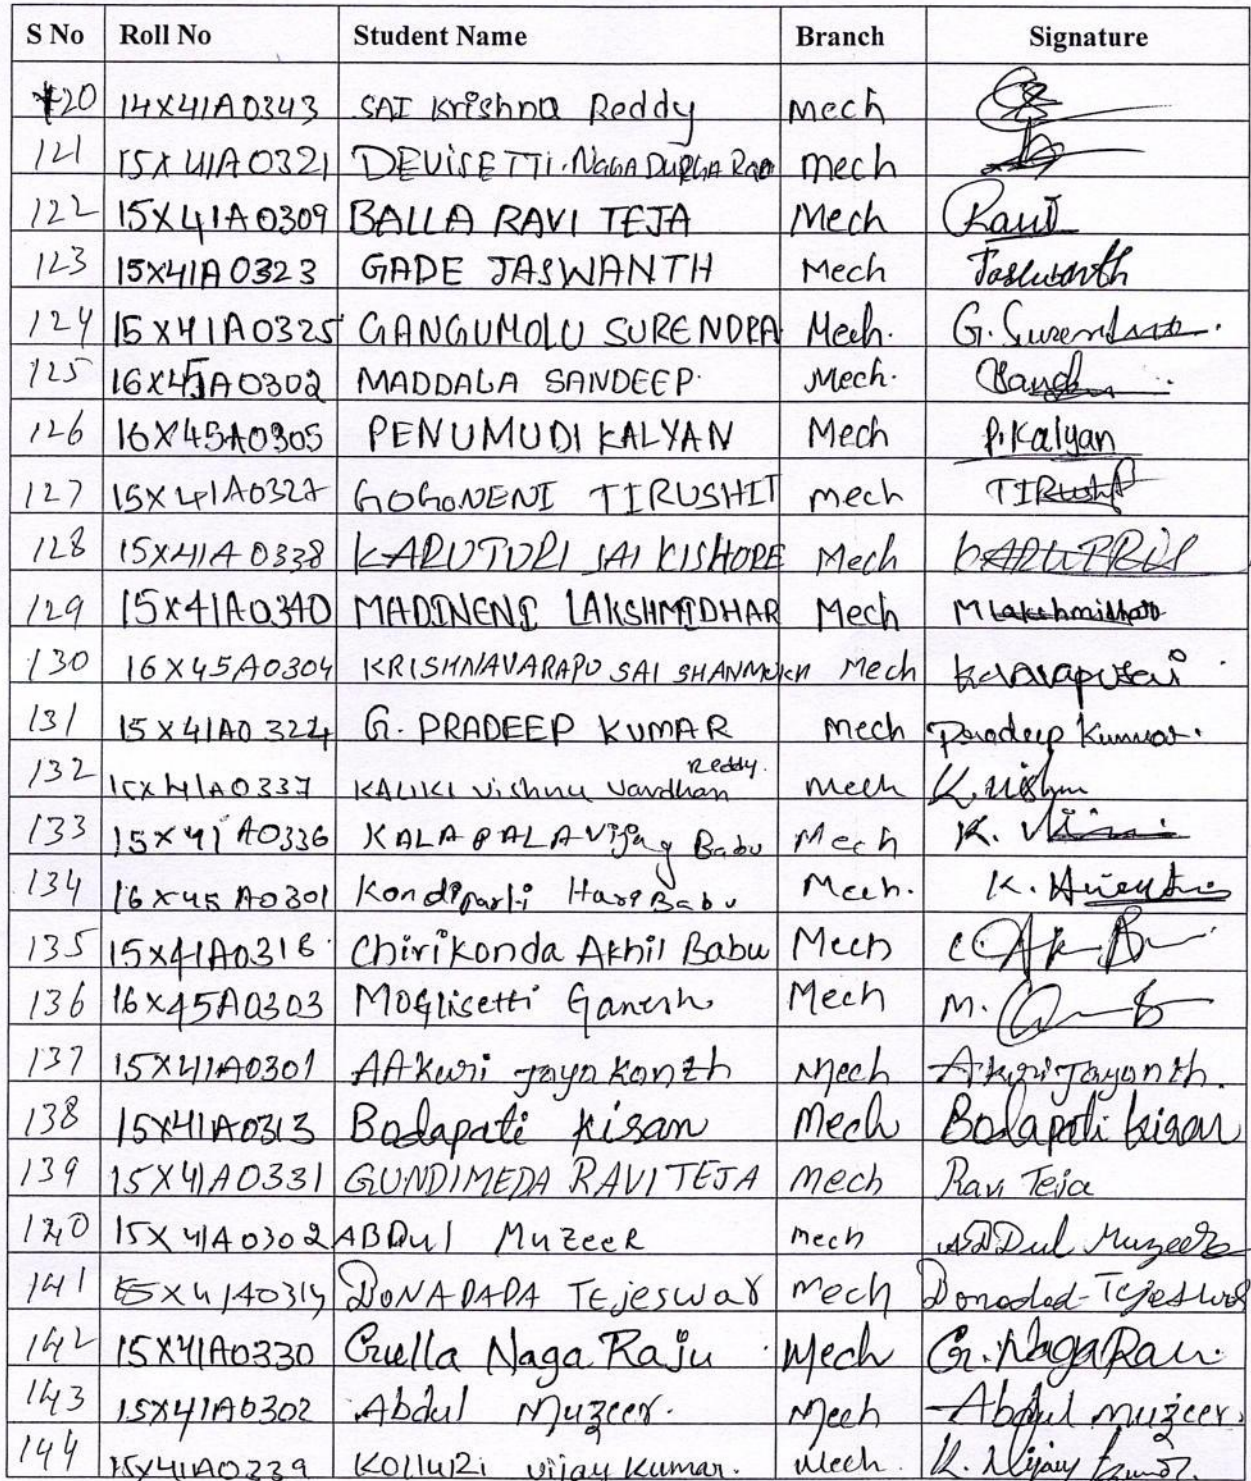 S No Roll No Student Name Branch Signature
120 14X41A0343 SAI Krishna Reddy Mech
121 15X41A0321 DEVISETTI.NAGA DURGA RAO Mech
122 15X41A0309 BALLA RAVI TEJA Mech Ravi
123 15X41A0323 GADE JASWANTH Mech Jaswanth
124 15X41A0325 GANGUMOLU SURENDRA Mech. G. Surendra
125 16X45A0302 MADDALA SANDEEP. Mech.
126 16X45A0305 PENUMUDI KALYAN Mech P.Kalyan
127 15X41A0327 GOGONENI TIRUSHIT Mech
128 15X41A0338 KARUTURI SAI KISHORE Mech
129 15X41A0340 MADINENI LAKSHMIDHAR Mech M Lakshmidhar
130 16X45A0304 KRISHNAVARAPU SAI SHANMUKH Mech
131 15X41A0324 G. PRADEEP KUMAR Mech Pradeep Kumar.
Reddy.
132 15X41A0337 KALIKI Vishnu Vardhan Mech K. Vishnu
133 15X41A0336 KALAPALA Vijay Babu Mech K.
134 16X45A0301 Kondiparti Hari Babu Mech. K.
135 15X41A0318 Chirikonda Akhil Babu Mech
136 16X45A0303 Moglisetti Ganesh Mech M.
137 15X41A0301 AAkuri Jaya Kanth Mech Akuri Jayanth.
138 15X41A0313 Bodapati Kisan Mech Bodapati Kisan
139 15X41A0331 GUNDIMEDA RAVI TEJA Mech Ravi Teja
140 15X41A0302 ABDul Muzeer Mech ABDul Muzeer
141 15X41A0314 BONADADA Tejeswar Mech Bonadad Tejeswar
142 15X41A0330 Guella Naga Raju Mech G. Naga Raju
143 15X41A0302 Abdul Muzeer. Mech Abdul muzeer.
144 15X41A0339 Kolluri vijay Kumar. Mech. K. Vijay Kumar